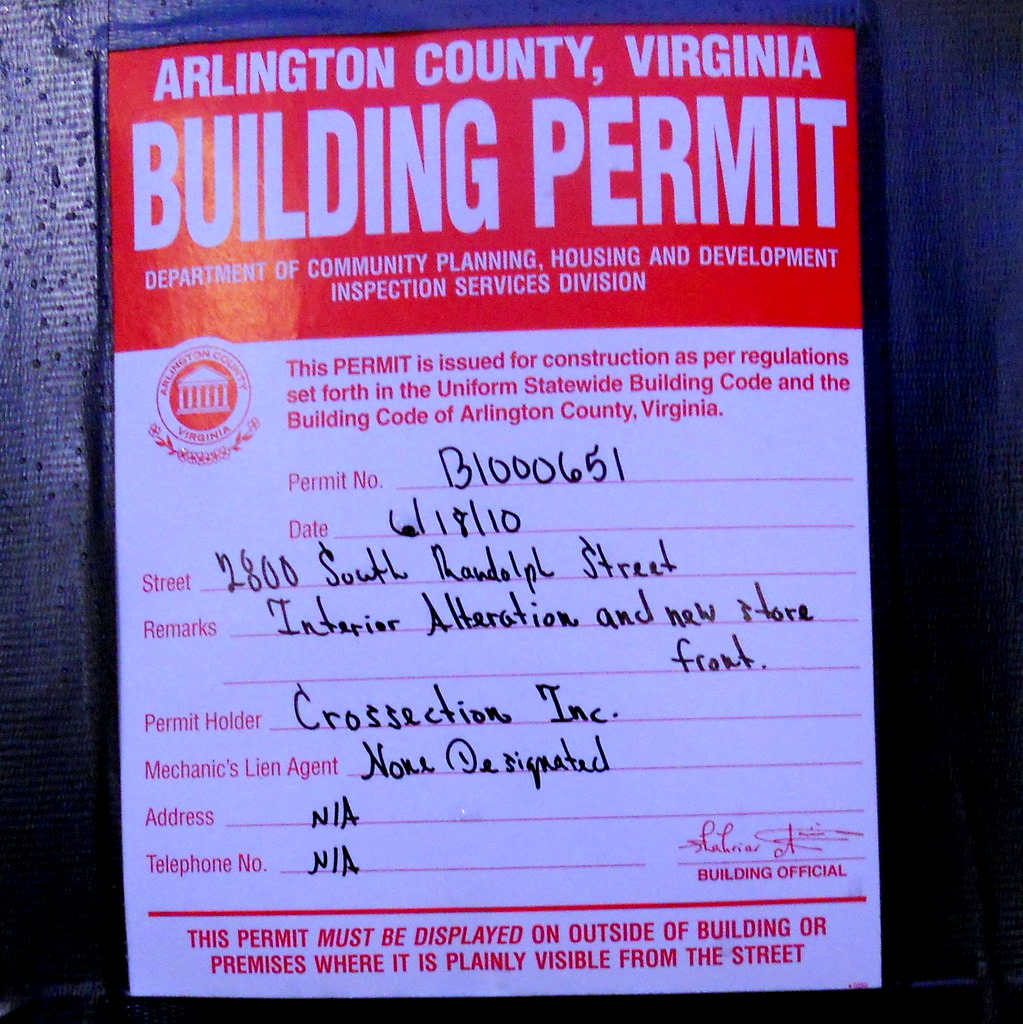 ARLINGTON COUNTY, VIRGINIA
BUILDING PERMIT
DEPARTMENT OF COMMUNITY PLANNING, HOUSING AND DEVELOPMENT
INSPECTION SERVICES DIVISION
ARLINGTON COUNTY
VIRGINIA
This PERMIT is issued for construction as per regulations
set forth in the Uniform Statewide Building Code and the
Building Code of Arlington County, Virginia.
Permit No. B1000651
Date 6/18/10
Street 2800 South Randolph Street
Remarks Interior Alteration and new store
front.
Permit Holder Crossection Inc.
Mechanic's Lien Agent None Designated
Address N/A
Telephone No. N/A
Shahriar
BUILDING OFFICIAL
THIS PERMIT MUST BE DISPLAYED ON OUTSIDE OF BUILDING OR
PREMISES WHERE IT IS PLAINLY VISIBLE FROM THE STREET